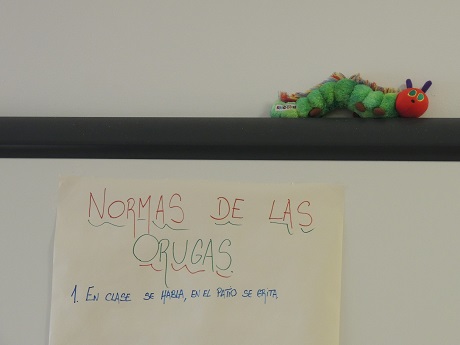 NORMAS DE LAS
ORUGAS.
1. EN CLASE SE HABLA, EN EL PATIO SE GRITA